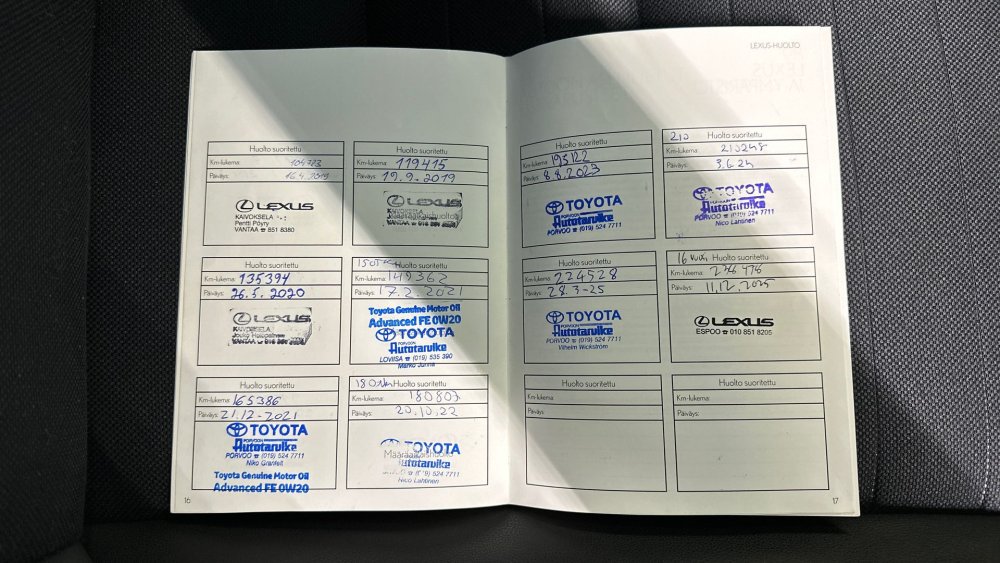 LEXUS-HUOLTO
Huolto suoritettu
Km-lukema: 104773
Päiväys: 16.4.2019
LEXUS
KAIVOKSELA
Pentti Pöyry
VANTAA ☎ 851 8380
Huolto suoritettu
Km-lukema: 119415
Päiväys: 19.9.2019
LEXUS
KAIVOKSELA
Huolto suoritettu
Km-lukema: 135394
Päiväys: 26.5.2020
LEXUS
KAIVOKSELA
Huolto suoritettu
Km-lukema: 149362
Päiväys: 17.2.2021
Toyota Genuine Motor Oil
Advanced FE 0W20
TOYOTA
PORVOON
Autotarvike
LOVIISA ☎ (019) 535 390
Huolto suoritettu
Km-lukema: 165386
Päiväys: 21.12-2021
TOYOTA
PORVOON
Autotarvike
PORVOO ☎ (019) 524 7711
Toyota Genuine Motor Oil
Advanced FE 0W20
Huolto suoritettu
Km-lukema: 180807
Päiväys: 20.10.22
TOYOTA
Autotarvike
(019) 524 7711
Nico Lahtinen
16
Huolto suoritettu
Km-lukema: 195122
Päiväys: 8.8.2023
TOYOTA
PORVOON
Autotarvike
PORVOO ☎ (019) 524 7711
210 Huolto suoritettu
Km-lukema: 210248
Päiväys: 3.6.24
TOYOTA
PORVOON
Autotarvike
PORVOO ☎ (019) 524 7711
Nico Lahtinen
Huolto suoritettu
Km-lukema: 224528
Päiväys: 28.3-25
TOYOTA
PORVOON
Autotarvike
PORVOO ☎ (019) 524 7711
Vilhelm Wickström
Huolto suoritettu
Km-lukema:
Päiväys: 11.12.2025
LEXUS
ESPOO ☎ 010 851 8205
Huolto suoritettu
Km-lukema:
Päiväys:
Huolto suoritettu
Km-lukema:
Päiväys:
17